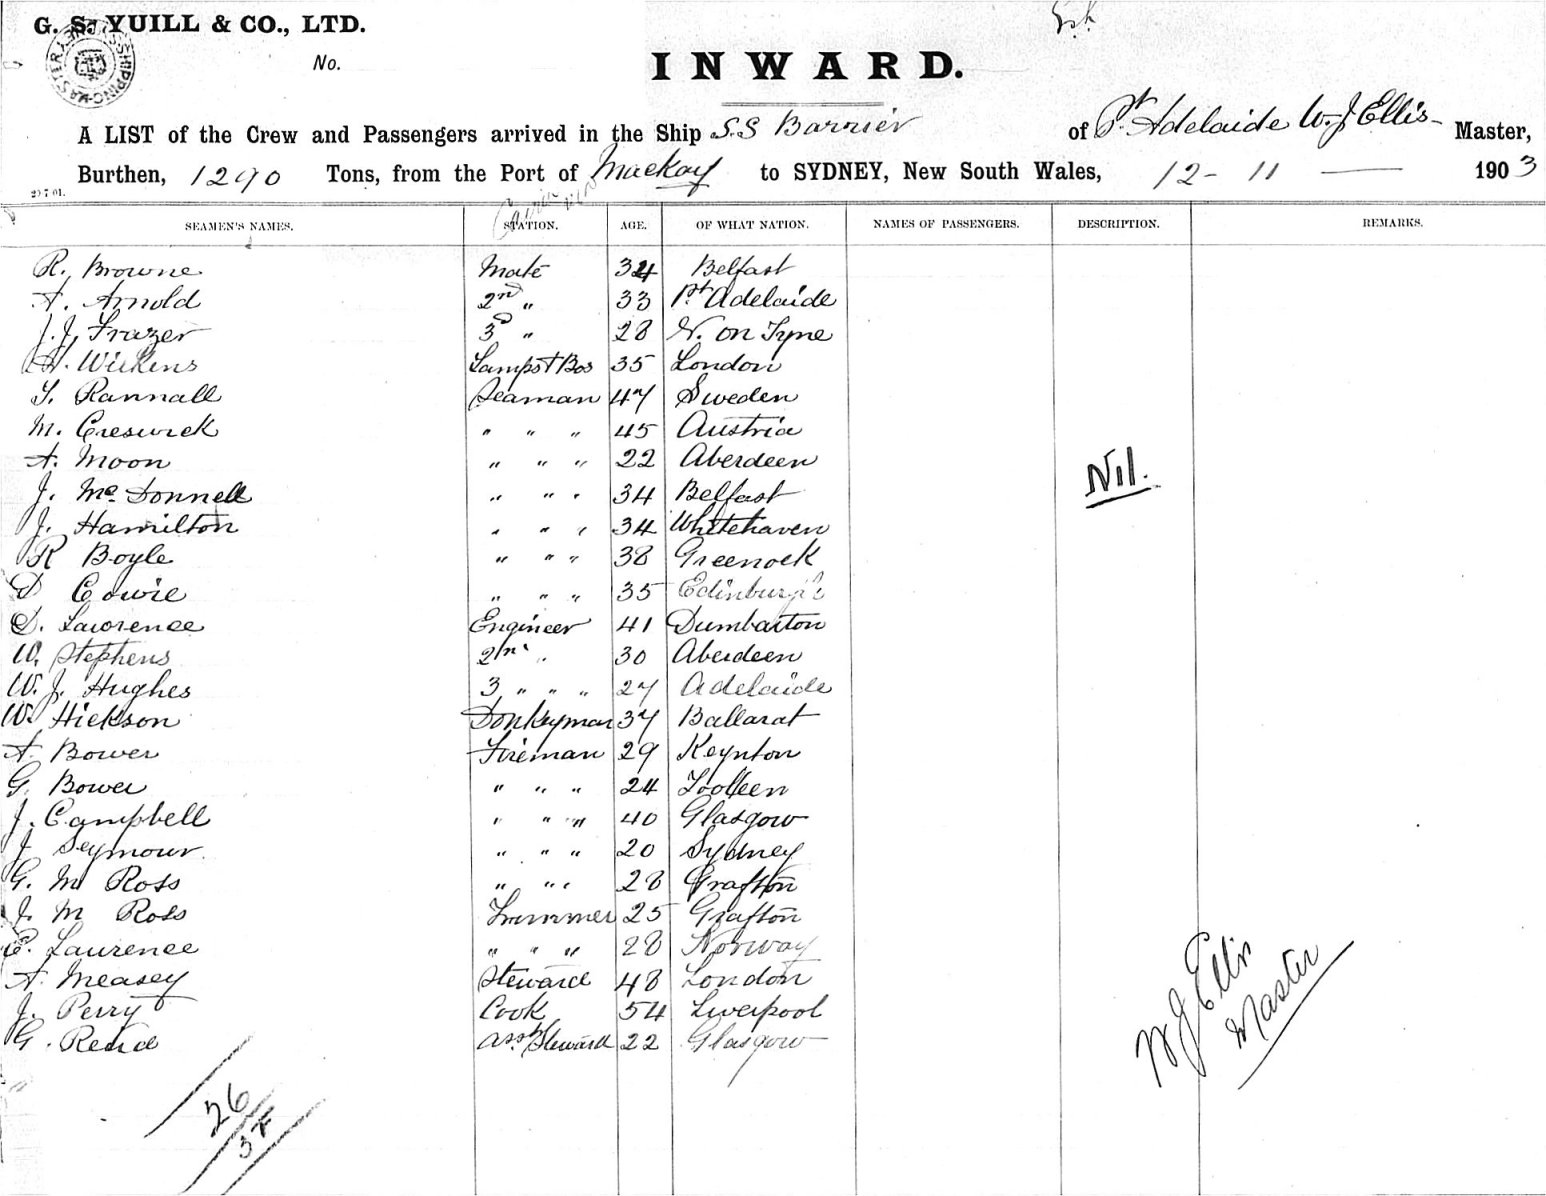 G. S. YUILL & CO., LTD.
No.
INWARD.
A LIST of the Crew and Passengers arrived in the Ship S.S Barrier of Pt Adelaide W. J Ellis Master,
Burthen, 1290 Tons, from the Port of Mackay to SYDNEY, New South Wales, 12 - 11 — 1903
SEAMEN'S NAMES. STATION. AGE. OF WHAT NATION. NAMES OF PASSENGERS. DESCRIPTION. REMARKS.
R. Browne Mate 34 Belfast
A. Arnold 2nd " 33 Pt Adelaide
J. J. Frazer 3d " 28 N. on Tyne
H. Wilkens Lamps & Bos 35 London
Rannall Seaman 47 Sweden
M. Creswick " " " 45 Austria
A. Moon " " " 22 Aberdeen
J. McDonnell " " " 34 Belfast
Nil.
J. Hamilton " " " 34 Whitehaven
R Boyle " " " 38 Greenock
D Cowie " " " 35 Edinburgh
D. Lawrence Engineer 41 Dumbarton
W. Stephens 2nd " 30 Aberdeen
W. J. Hughes 3 " " " 27 Adelaide
W. Hickson Donkeyman 37 Ballarat
A. Bower Fireman 29 Keynton
G. Bower " " " 24 Toolleen
J. Campbell " " " 40 Glasgow
J Seymour " " " 20 Sydney
G. M Ross " " " 28 Grafton
J. M Ross Trimmer 25 Grafton
E. Laurence " " " 28 Norway
A. Measey Steward 48 London
J. Perry Cook 54 Liverpool
G. Reid Asst Steward 22 Glasgow
W J Ellis
Master
26